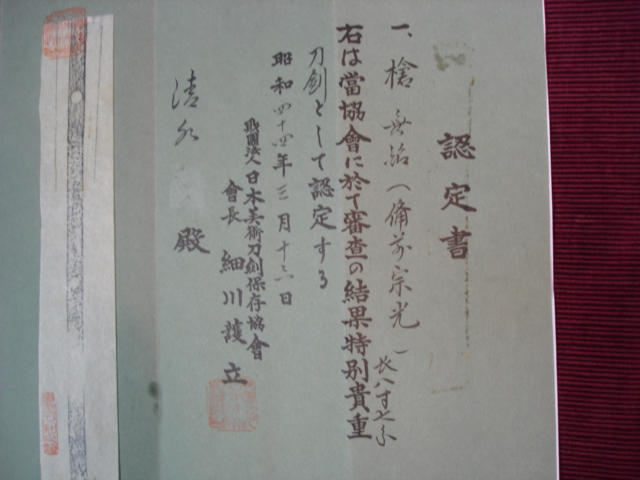 認定書
一、槍 無銘（備前宗光）長八寸七分
右は當協會に於て審査の結果特別貴重
刀剣として認定する
昭和四十四年三月十六日
財團法人日本美術刀剣保存協會
會長 細川護立
清水 殿